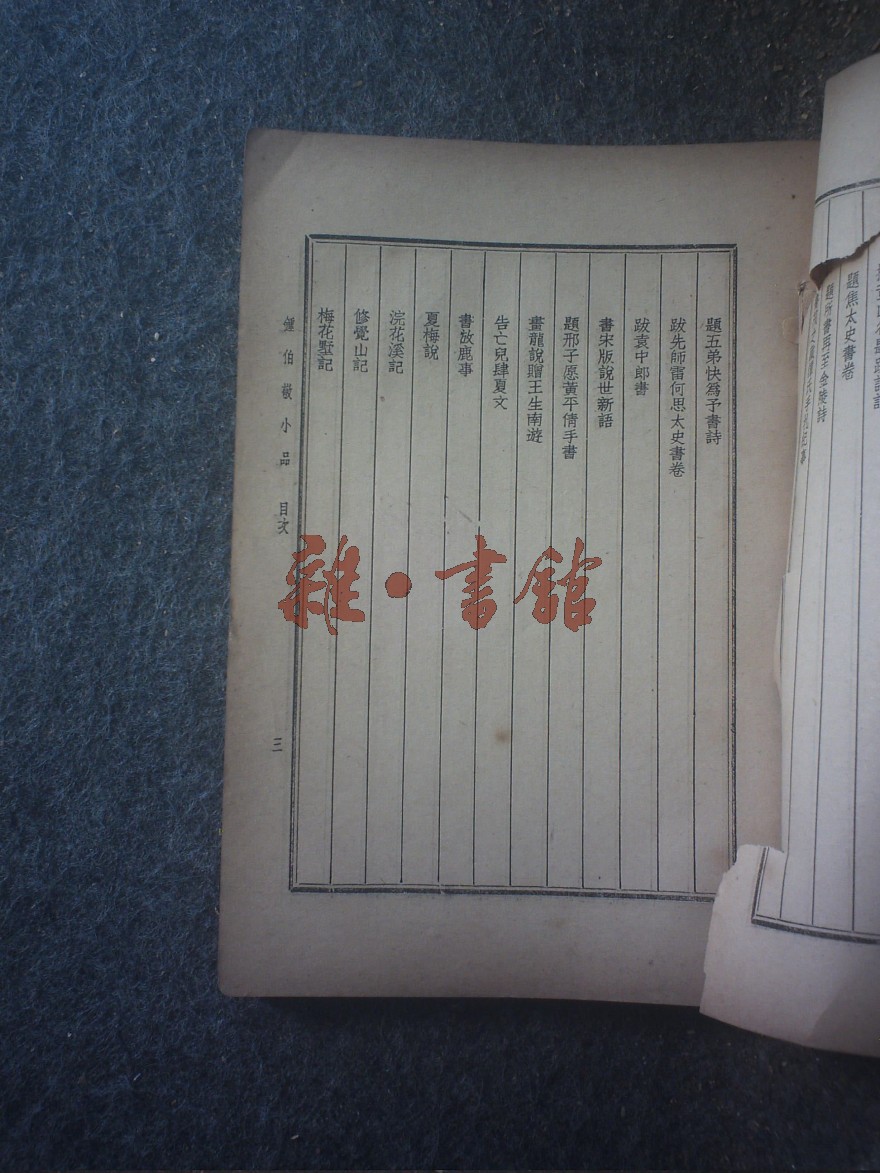 題焦太史書卷
題五弟快爲予書詩
跋先師雷何思太史書卷
跋袁中郎書
書宋版說世新語
題邢子愿黃平倩手書
畫龍說贈王生南遊
告亡兒肆夏文
書放鹿事
夏梅說
浣花溪記
修覺山記
梅花墅記
鍾伯敬小品 目次
三
雜·書館